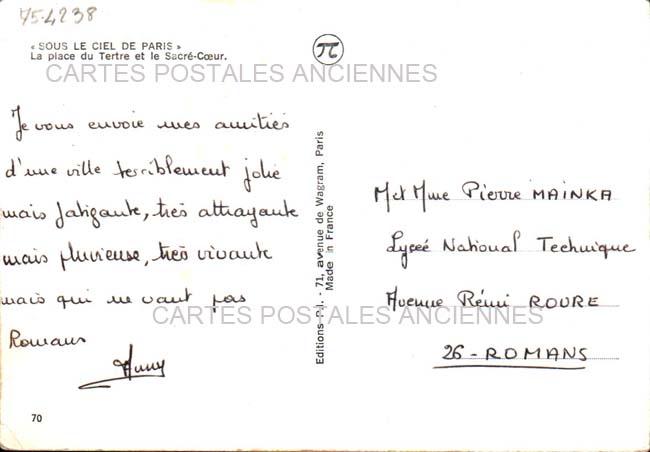 75-4238
« SOUS LE CIEL DE PARIS »
La place du Tertre et le Sacré-Cœur.
CARTES POSTALES ANCIENNES
Je vous envoie mes amitiés
d'une ville terriblement jolie
mais fatigante, très attrayante
mais pluvieuse, très vivante
mais qui ne vaut pas
Romans
70
Editions P.I. - 71, avenue de Wagram, Paris
Made in France
M et Mme Pierre MAINKA
Lycée National Technique
Avenue Rémi ROURE
CARTES POSTALES ANCIENNES
26 - ROMANS